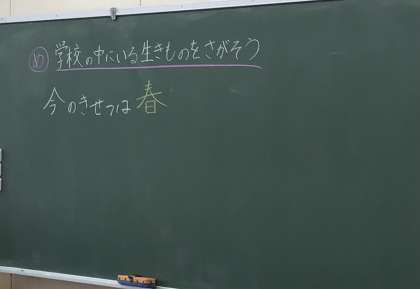 め 学校の中にいる生きものをさがそう
今のきせつは 春